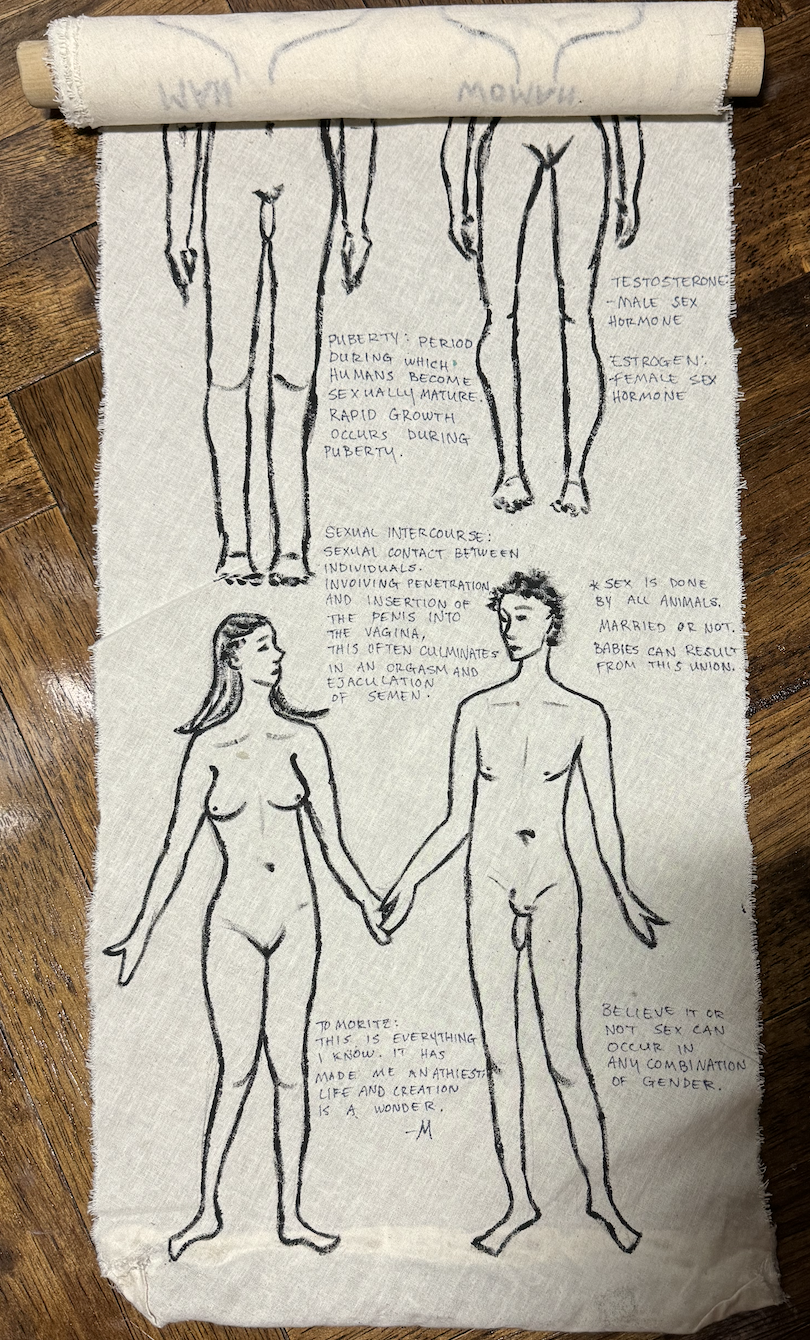 MAN
WOMAN
TESTOSTERONE:
-MALE SEX
HORMONE
ESTROGEN:
-FEMALE SEX
HORMONE
PUBERTY: PERIOD
DURING WHICH
HUMANS BECOME
SEXUALLY MATURE.
RAPID GROWTH
OCCURS DURING
PUBERTY.
SEXUAL INTERCOURSE:
SEXUAL CONTACT BETWEEN
INDIVIDUALS.
INVOLVING PENETRATION
AND INSERTION OF
THE PENIS INTO
THE VAGINA,
THIS OFTEN CULMINATES
IN AN ORGASM AND
EJACULATION
OF SEMEN.
* SEX IS DONE
BY ALL ANIMALS.
MARRIED OR NOT.
BABIES CAN RESULT
FROM THIS UNION.
TO MORITZ:
THIS IS EVERYTHING
I KNOW. IT HAS
MADE ME AN ATHIEST.
LIFE AND CREATION
IS A WONDER.
-M
BELIEVE IT OR
NOT SEX CAN
OCCUR IN
ANY COMBINATION
OF GENDER.